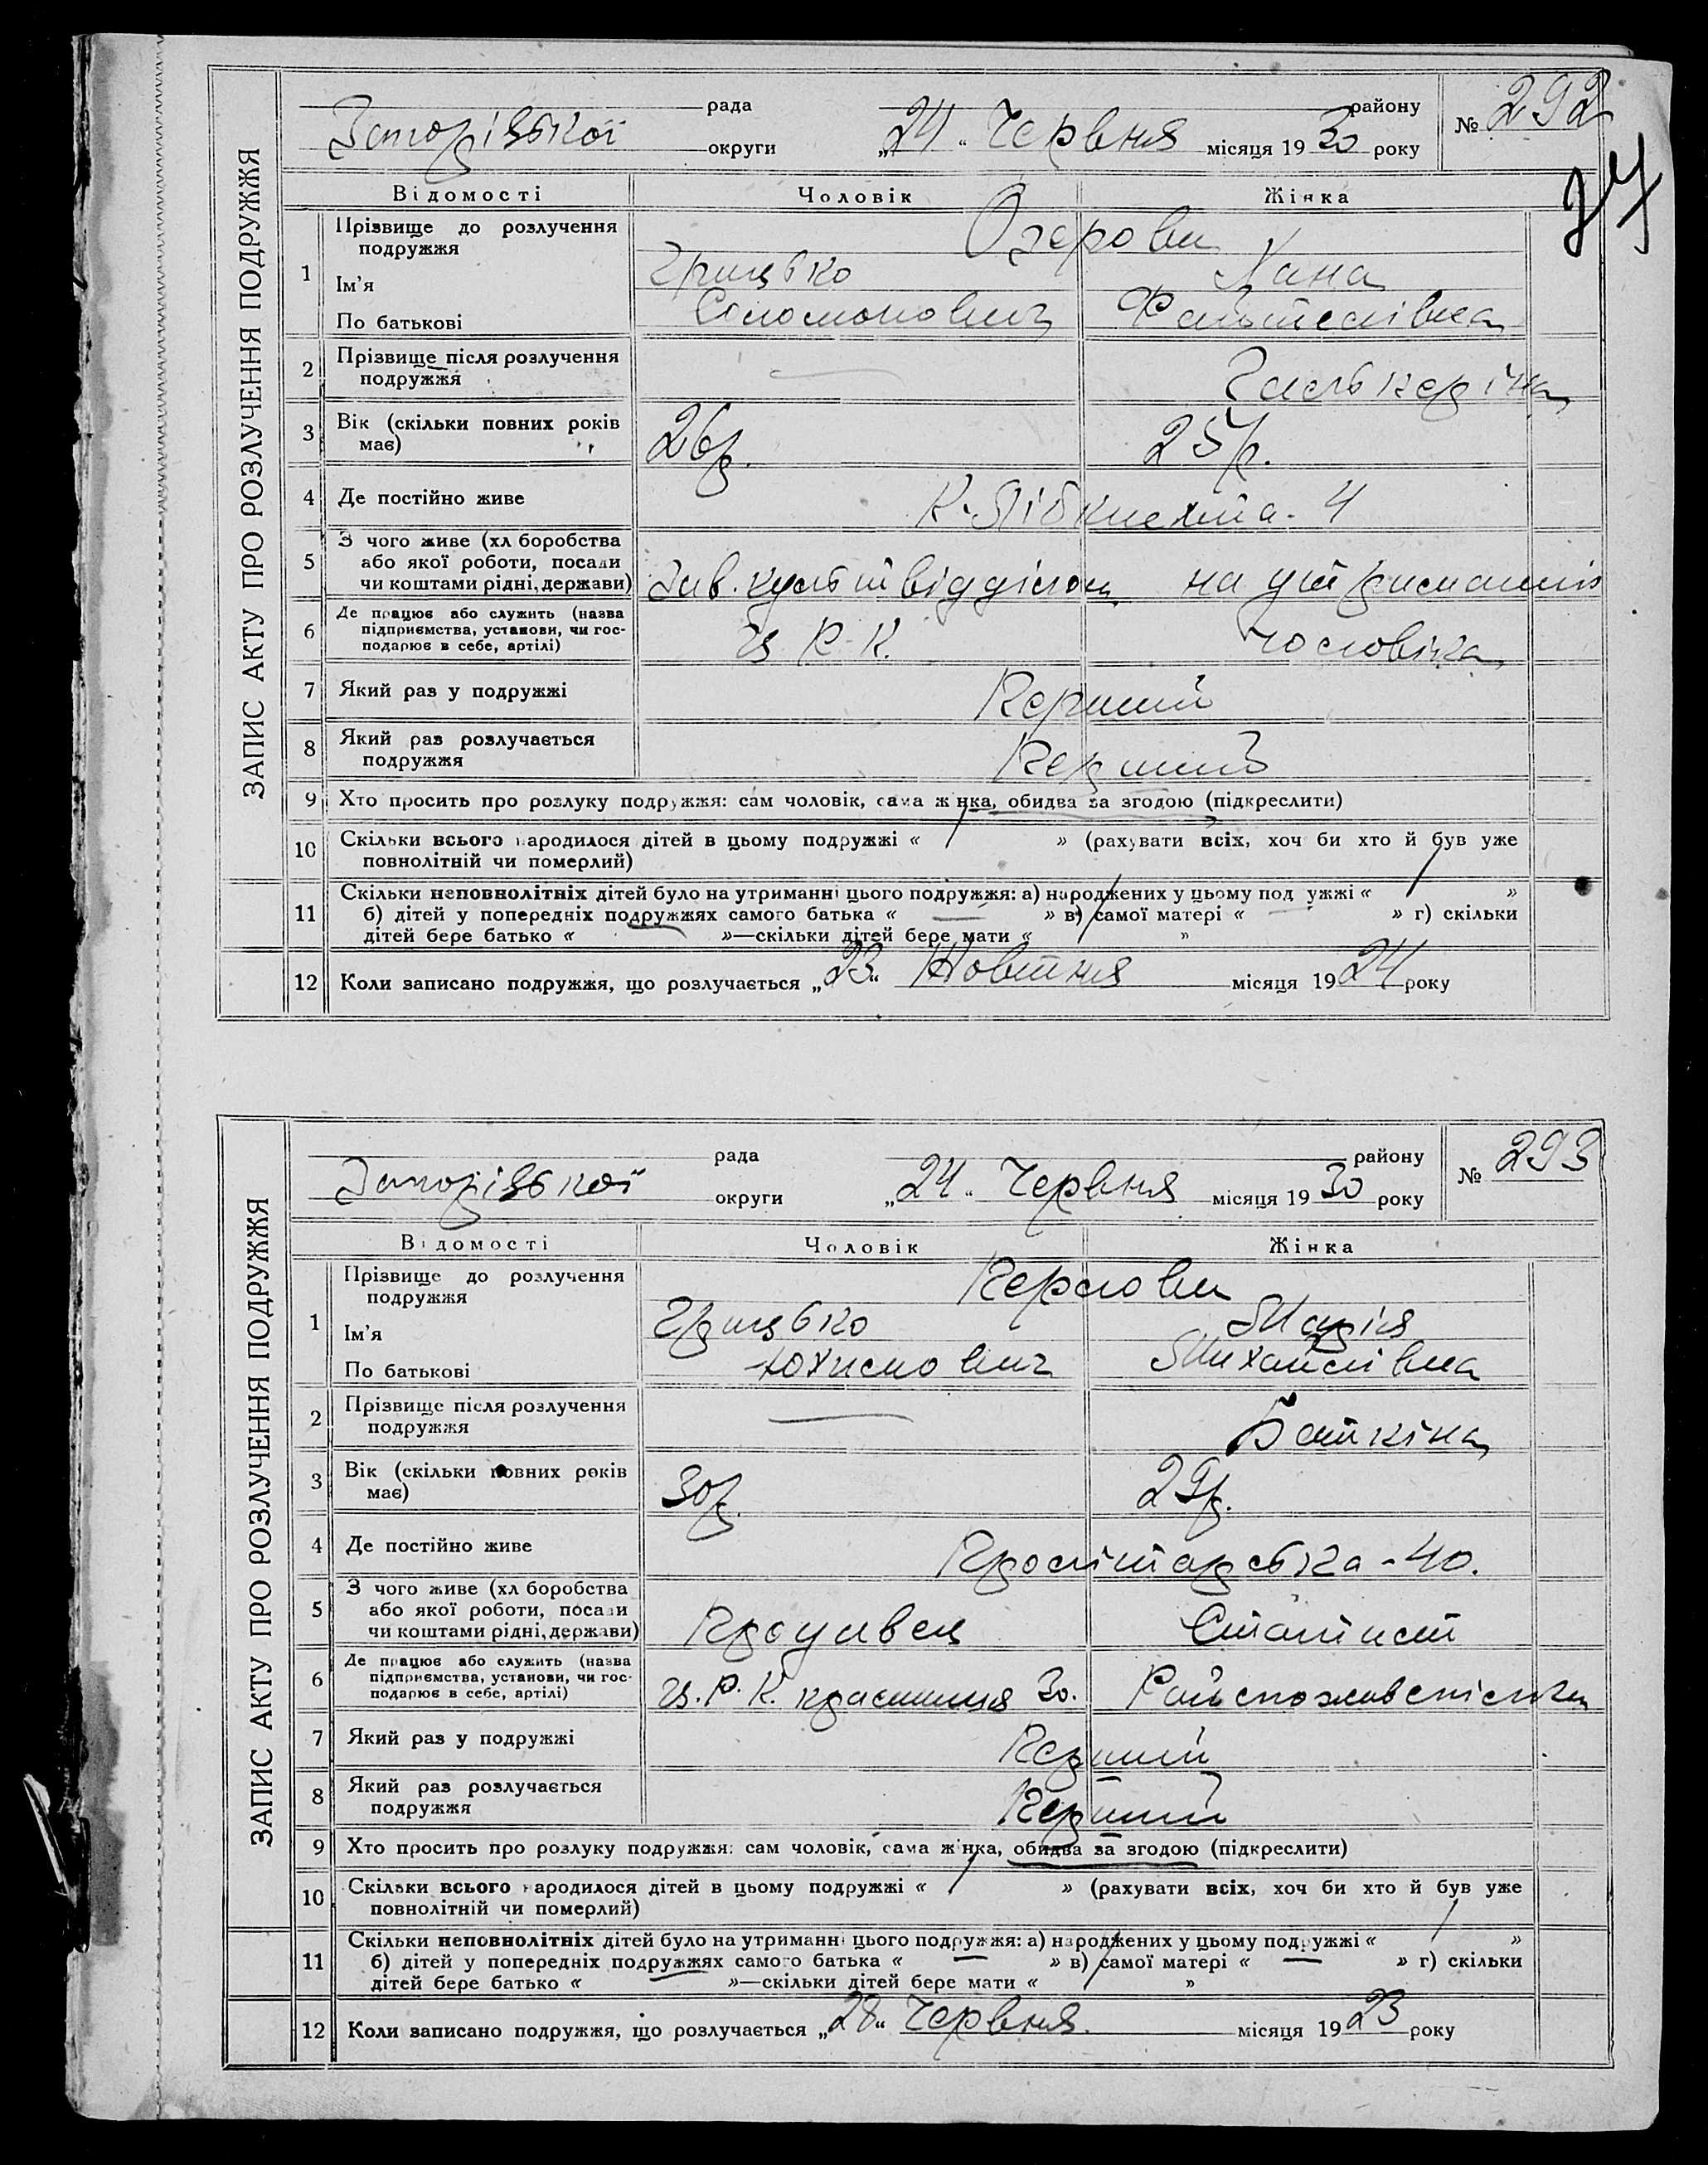 ЗАПИС АКТУ ПРО РОЗЛУЧЕННЯ ПОДРУЖЖЯ
рада району
Запорізької округи „24“ Червня місяця 1930 року № 292
Відомості Чоловік Жінка
1 Прізвище до розлучення подружжя Озерови
Ім'я Грицько Хана
По батькові Соломонович
2 Прізвище після розлучення
подружжя —
3 Вік (скільки повних років
має) 26р. 25р.
4 Де постійно живе К. Лібкнехта - 4
5 З чого живе (хл боробства
або якої роботи, посади
чи коштами рідні, держави) Зав. культвідділом на утриманні
6 Де працює або служить (назва
підприємства, установи, чи гос-
подарює в себе, артілі) Ц. Р. К. чоловіка
7 Який раз у подружжі Перший
8 Який раз розлучається
подружжя Перший
9 Хто просить про розлуку подружжя: сам чоловік, сама жінка, обидва за згодою (підкреслити)
10 Скільки всього народилося дітей в цьому подружжі « / » (рахувати всіх, хоч би хто й був уже
повнолітній чи померлий)
11 Скільки неповнолітніх дітей було на утриманні цього подружжя: а) народжених у цьому подружжі « / »
б) дітей у попередніх подружжях самого батька « — » в) самої матері « — » г) скільки
дітей бере батько « — »—скільки дітей бере мати « / »
12 Коли записано подружжя, що розлучається „23“ Жовтня місяця 1924 року
ЗАПИС АКТУ ПРО РОЗЛУЧЕННЯ ПОДРУЖЖЯ
рада району
Запорізької округи „24“ Червня місяця 1930 року № 293
Відомості Чоловік Жінка
1 Прізвище до розлучення
подружжя Перлови
Ім'я Грицько Марія
По батькові Юхимович Михайлівна
2 Прізвище після розлучення
подружжя — Баткіна
3 Вік (скільки повних років
має) 30р. 29р.
4 Де постійно живе Пролітарська - 40.
5 З чого живе (хл боробства
або якої роботи, посади
чи коштами рідні, держави) Продавець Статист
6 Де працює або служить (назва
підприємства, установи, чи гос-
подарює в себе, артілі) Ц. Р. К. крамниця 30. Райспоживспілка
7 Який раз у подружжі Перший
8 Який раз розлучається
подружжя Перший
9 Хто просить про розлуку подружжя: сам чоловік, сама жінка, обидва за згодою (підкреслити)
10 Скільки всього народилося дітей в цьому подружжі « / » (рахувати всіх, хоч би хто й був уже
повнолітній чи померлий)
11 Скільки неповнолітніх дітей було на утриманні цього подружжя: а) народжених у цьому подружжі « / »
б) дітей у попередніх подружжях самого батька « — » в) самої матері « — » г) скільки
дітей бере батько « — »—скільки дітей бере мати « / »
12 Коли записано подружжя, що розлучається „28“ Червня. місяця 1923 року